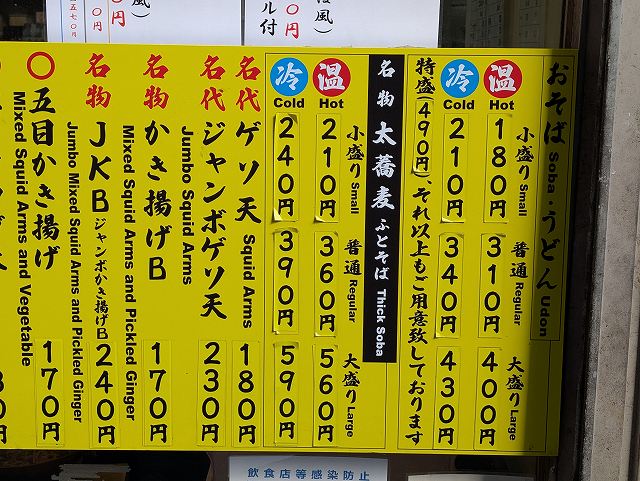 おそば Soba・うどん Udon
温 Hot
冷 Cold
小盛り Small
180円
210円
普通 Regular
310円
340円
大盛り Large
400円
430円
特盛(490円)、それ以上もご用意致しております
名物 太蕎麦 ふとそば Thick Soba
温 Hot
冷 Cold
小盛り Small
210円
240円
普通 Regular
360円
390円
大盛り Large
560円
590円
名代 ゲソ天 Squid Arms 180円
名代 ジャンボゲソ天 230円
Jumbo Squid Arms
名物 かき揚げB 170円
Mixed Squid Arms and Pickled Ginger
名物 JKB ジャンボかき揚げB 240円
Jumbo Mixed Squid Arms and Pickled Ginger
〇 五目かき揚げ 170円
Mixed Squid Arms and Vegetable
飲食店等感染防止